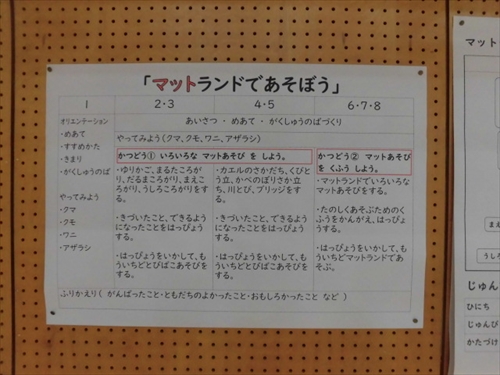 「マットランドであそぼう」
1
2・3
4・5
6・7・8
オリエンテーション
・めあて
・すすめかた
・きまり
・がくしゅうのば
やってみよう
・クマ
・クモ
・ワニ
・アザラシ
あいさつ ・ めあて ・ がくしゅうのばづくり
やってみよう(クマ、クモ、ワニ、アザラシ)
かつどう① いろいろな マットあそび を しよう。
・ゆりかご、まるたころが
り、だるまころがり、まえこ
ろがり、うしろころがりをす
る。
・きづいたこと、できるよう
になったことをはっぴょう
する。
・はっぴょうをいかして、も
ういちどとびばこあそびを
する。
・カエルのさかだち、くびと
う立、かべのぼりさか立
ち、川とび、ブリッジをす
る。
・きづいたこと、できるよう
になったことをはっぴょう
する。
・はっぴょうをいかして、も
ういちどとびばこあそびを
する。
かつどう② マットあそび
を くふう しよう。
・マットランドでいろいろな
マットあそびをする。
・たのしくあそぶための
くふうをかんがえ、はっぴょ
うする。
・はっぴょうをいかして、も
ういちどマットランドであ
そぶ。
ふりかえり( がんばったこと・ともだちのよかったこと・おもしろかったこと など )
マット
うしろ
じゅん
ひにち
じゅんび
かたづけ